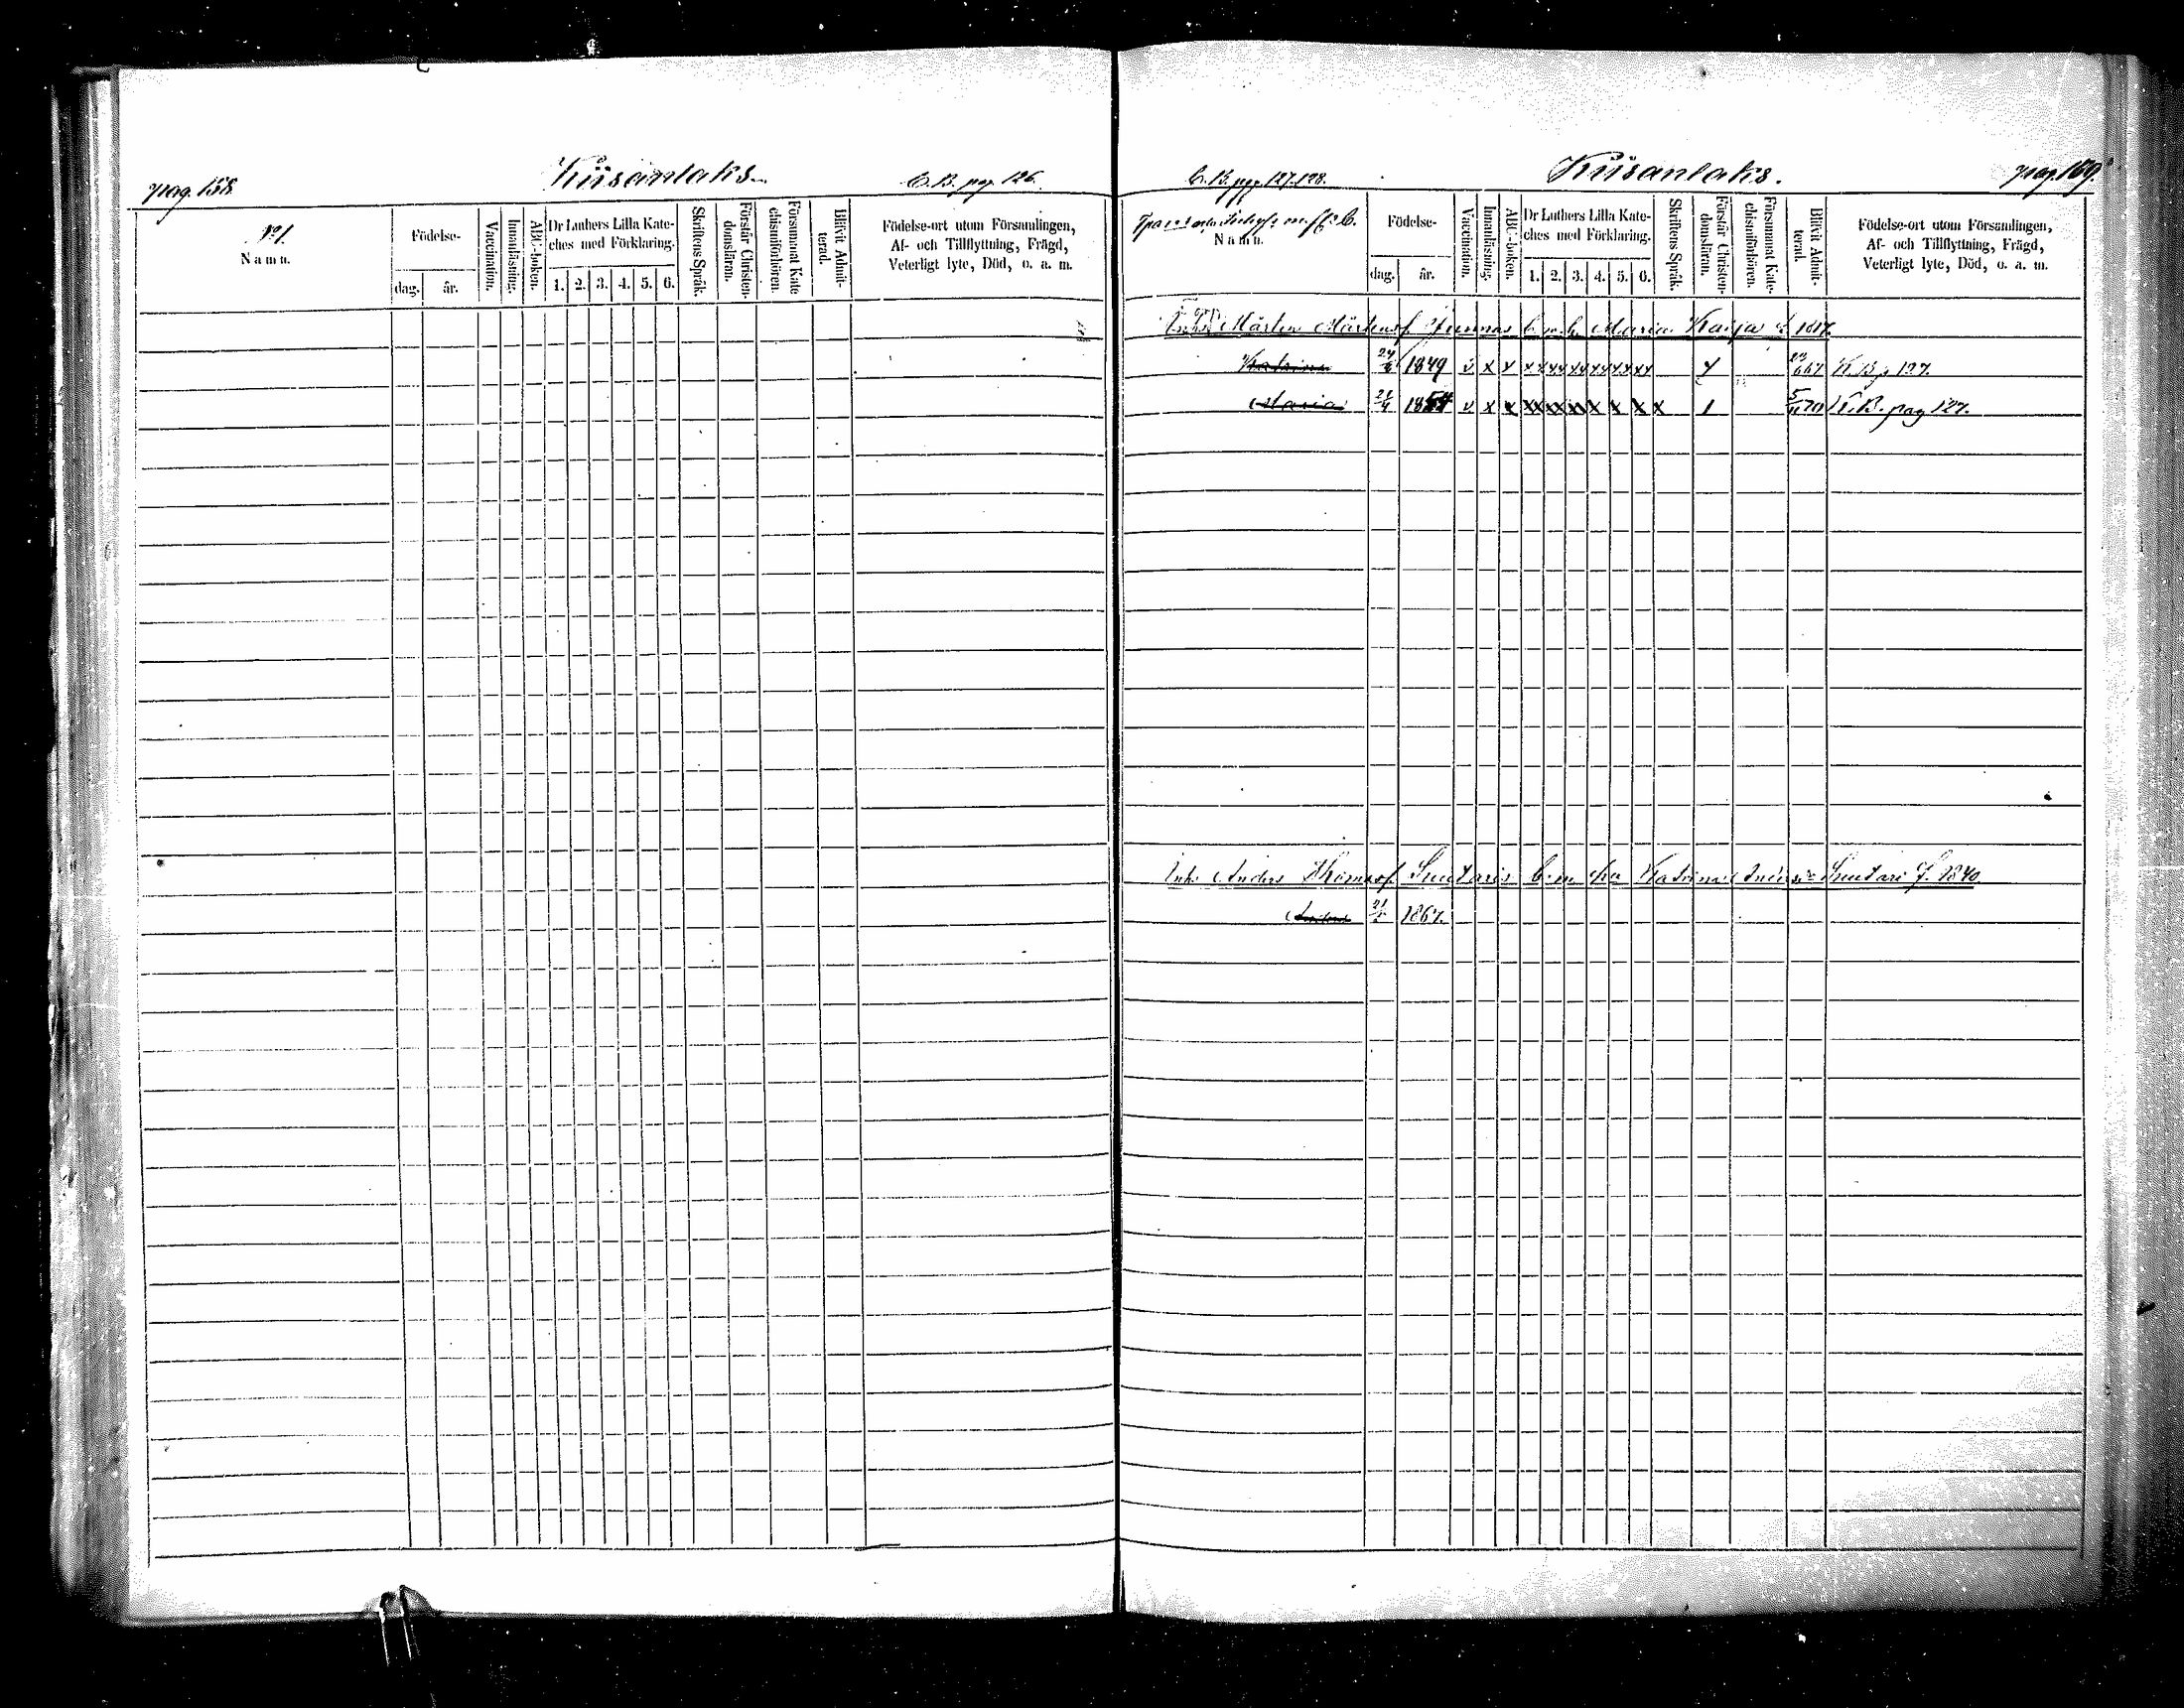 pag. 158.
Kiisanlaks.
C. B. pag. 126.
No 1.
Namn.
Födelse-
dag.
år.
Vaccination.
Innanläsning.
ABC-boken.
Dr Luthers Lilla Kate-
ches med Förklaring.
1. 2. 3. 4. 5. 6.
Skriftens Språk.
Förstår Christen-
domsläran.
Försummat Kate
chismiförhören.
Blifvit Admit-
terad.
Födelse-ort utom Församlingen,
Af- och Tillflyttning, Frägd,
Veterligt lyte, Död, o. a. m.
C. B. pag. 127. 128.
Kiisanlaks.
pag. 159.
Namn.
Födelse-
dag.
år.
Vaccination.
Innanläsning.
ABC-boken.
Dr Luthers Lilla Kate-
ches med Förklaring.
1. 2. 3. 4. 5. 6.
Skriftens Språk.
Förstår Christen-
domsläran.
Försummat Kate-
chismiförhören.
Blifvit Admit-
terad.
Födelse-ort utom Församlingen,
Af- och Tillflyttning, Frägd,
Veterligt lyte, Död, o. a. m.
Inh. Mårten Mårtensf. b. m. h. Maria 1817.
Katrina 24/6 1849 v x x K. B. p 127.
Maria 21/4 1854 v x x 1 K. B. pag 127.
Inh. Anders Thomasf. Suutari b. m. Katrina Suutari f. 1840
1867.